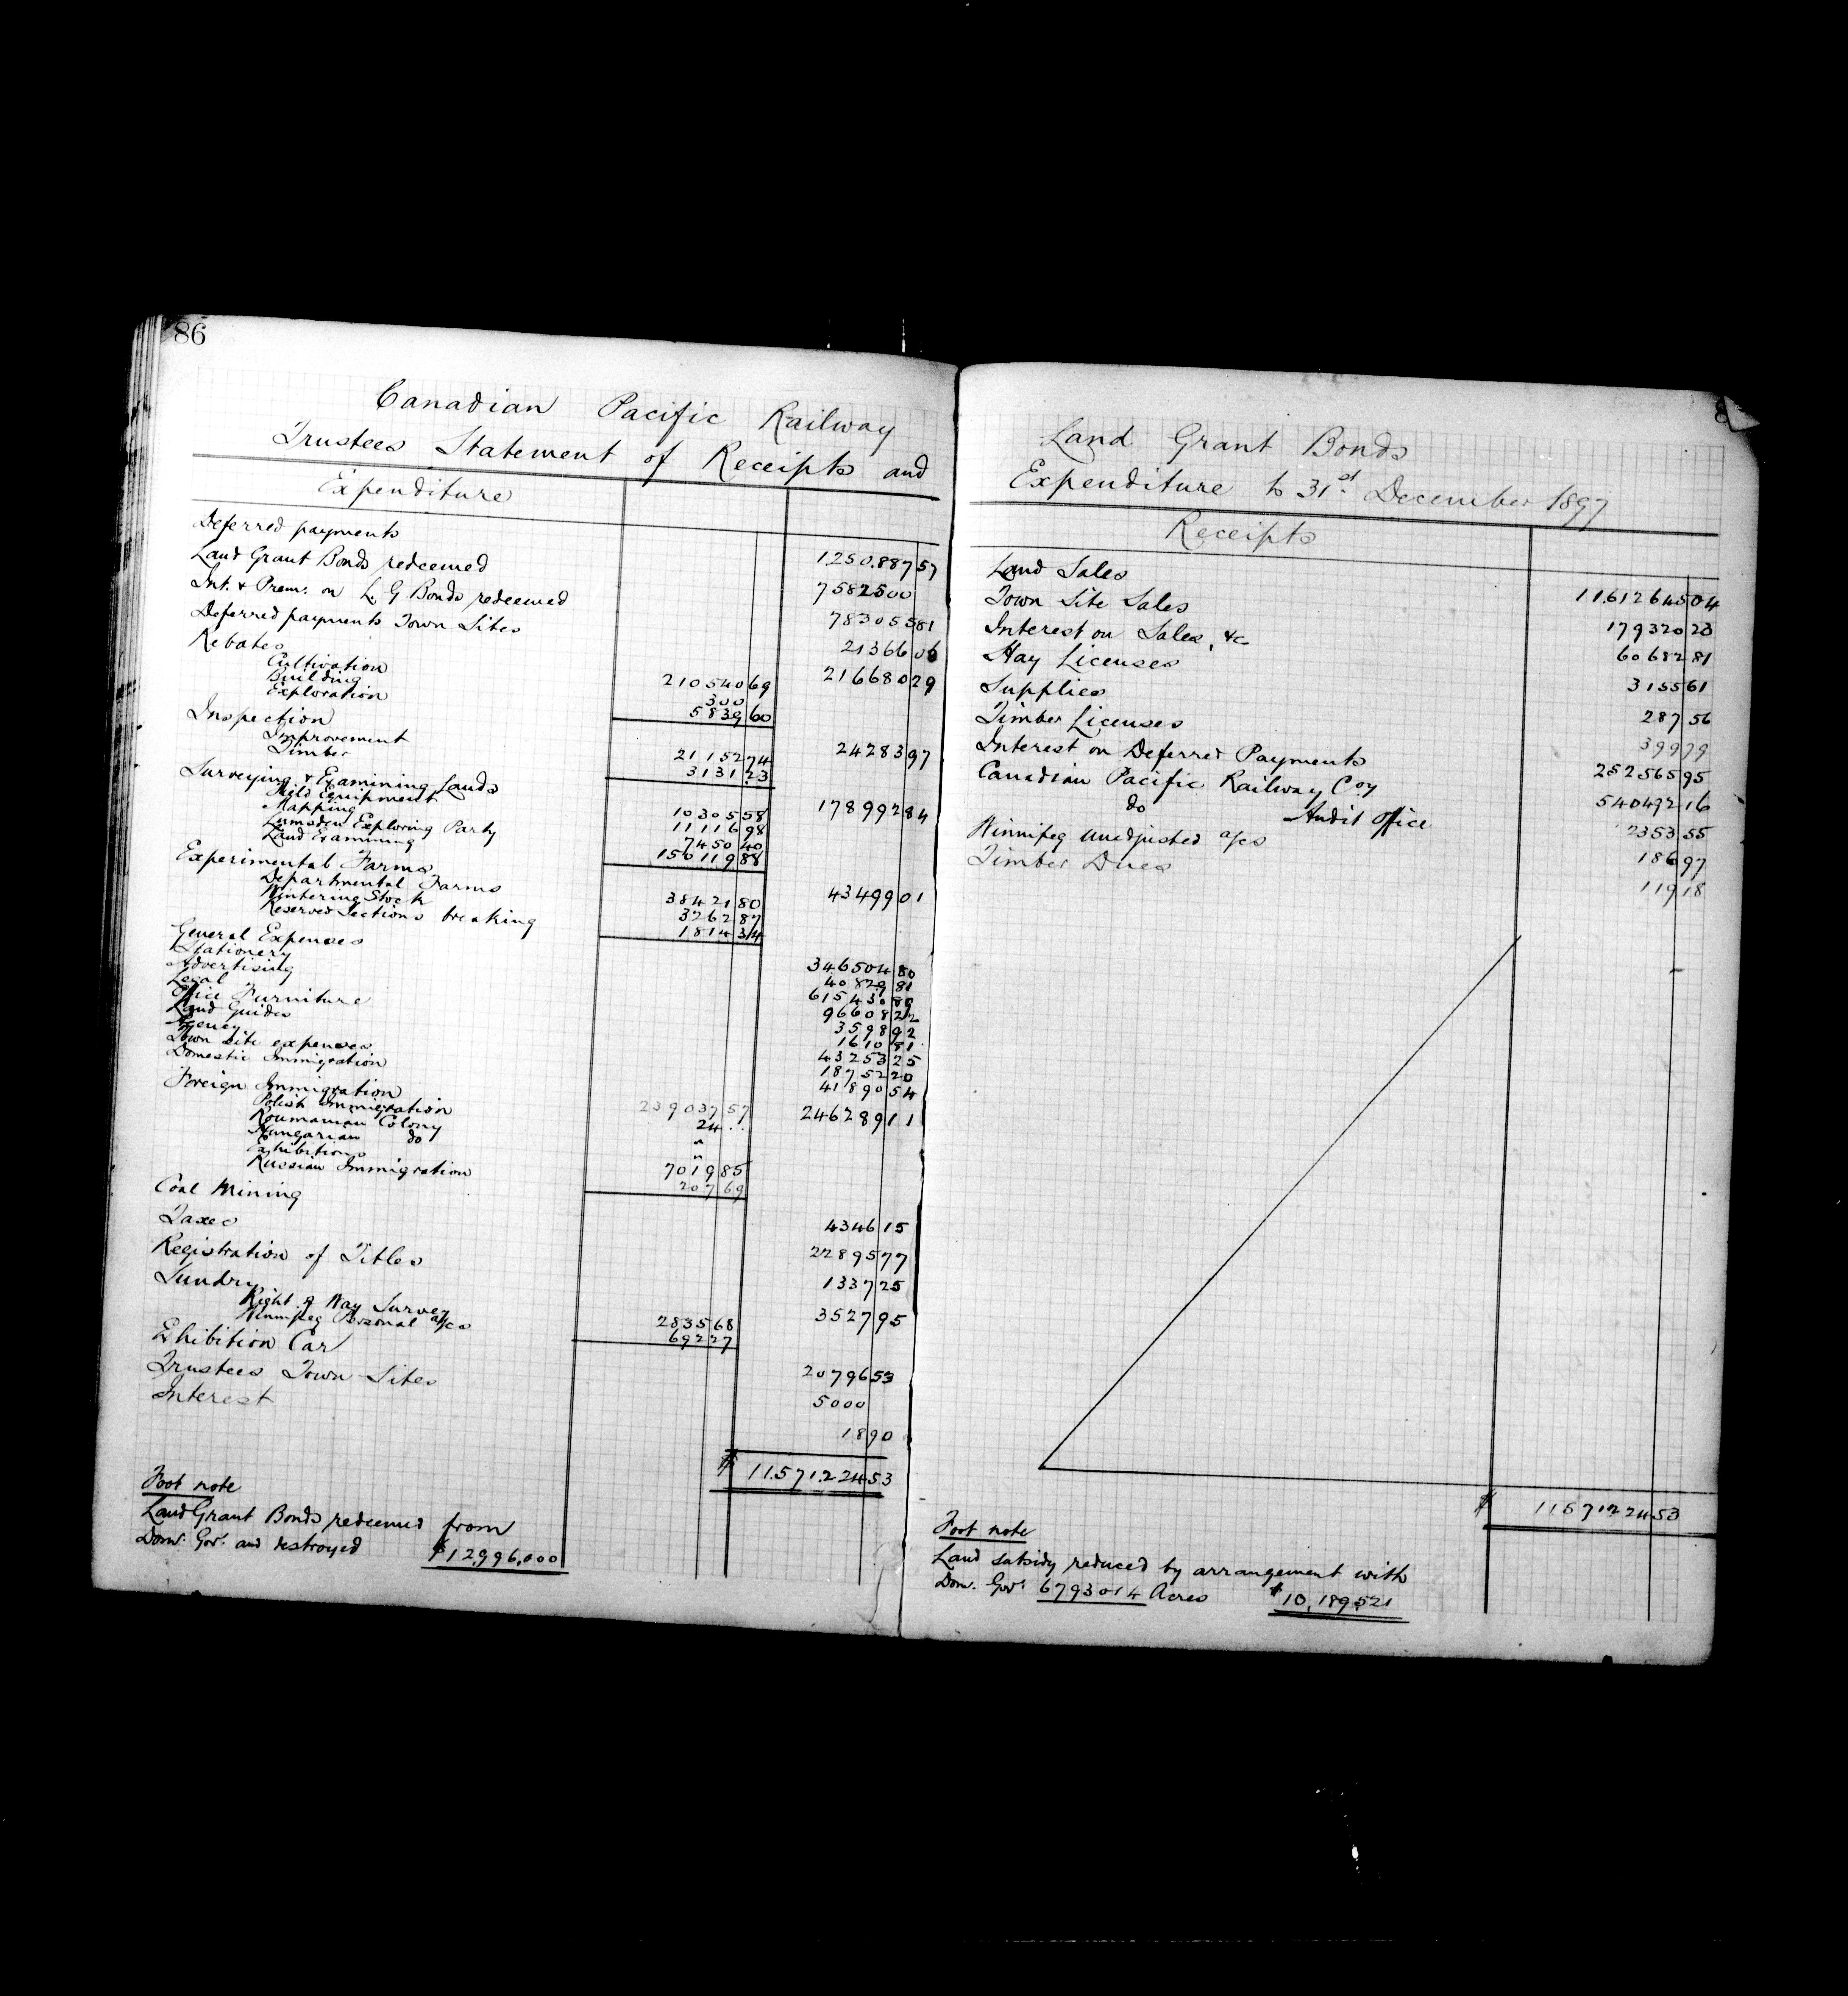 86
Canadian Pacific Railway
Trustees Statement of Receipts and
Expenditure
Deferred payments 1.250.887 57
Land Grant Bonds redeemed 7582500
Int. & Prem. on L. G Bonds redeemed 783055 81
Deferred payments Town Sites 21366 06
Rebates 216680 29
Cultivation 210540 69
Building 300
Exploration 5839 60
Inspection 24283 97
Improvement 21152 74
Timber 3131 23
Surveying & Examining Lands 178992 84
Field Equipment 10305 58
Mapping 11116 98
Lumsden Exploring Party 7450 40
Land Examining 150119 88
Experimental Farms 43499 01
Departmental Farms 38421 80
Wintering Stock 3262 87
Reserved Sections breaking 1814 34
General Expenses 346504 80
Stationery 40829 81
Advertising 615430 89
Legal 96608 22
Office Furniture 3598 92
Land Guides 1610 81
Agency 43253 25
Town Site expenses 18752 20
Domestic Immigration 41890 54
Foreign Immigration 246289 11
Polish Immigration 239037 57
Roumanian Colony 24 ..
Hungarian do "
Exhibitions "
7019 85
Russian Immigration 207 69
Coal Mining 4346 15
Taxes 22895 77
Registration of Titles 1337 25
Sundry 3527 95
Right of Way Survey 2835 68
Winnipeg Personal a/cs 692 27
Exhibition Car 20796 53
Trustees Town Sites 5000
Interest 18 90
$ 11.571.224 53
Foot note
Land Grant Bonds redeemed from
Dom. Gov. and destroyed $12,996,000
Land Grant Bonds
Expenditure to 31st December 1897
Receipts
Land Sales 11.612645 04
Town Site Sales 179320 23
Interest on Sales, &c 60682 81
Hay Licenses 3155 61
Supplies 287 56
Timber Licenses 399 79
Interest on Deferred Payments 252565 95
Canadian Pacific Railway Coy 540492 16
do Audit Office 2353 55
Winnipeg Unadjusted a/cs 186 97
Timber Dues 119 18
$ 11571224 53
Foot note
Land subsidy reduced by arrangement with
Dom. Govt 6793014 Acres $10,189,521